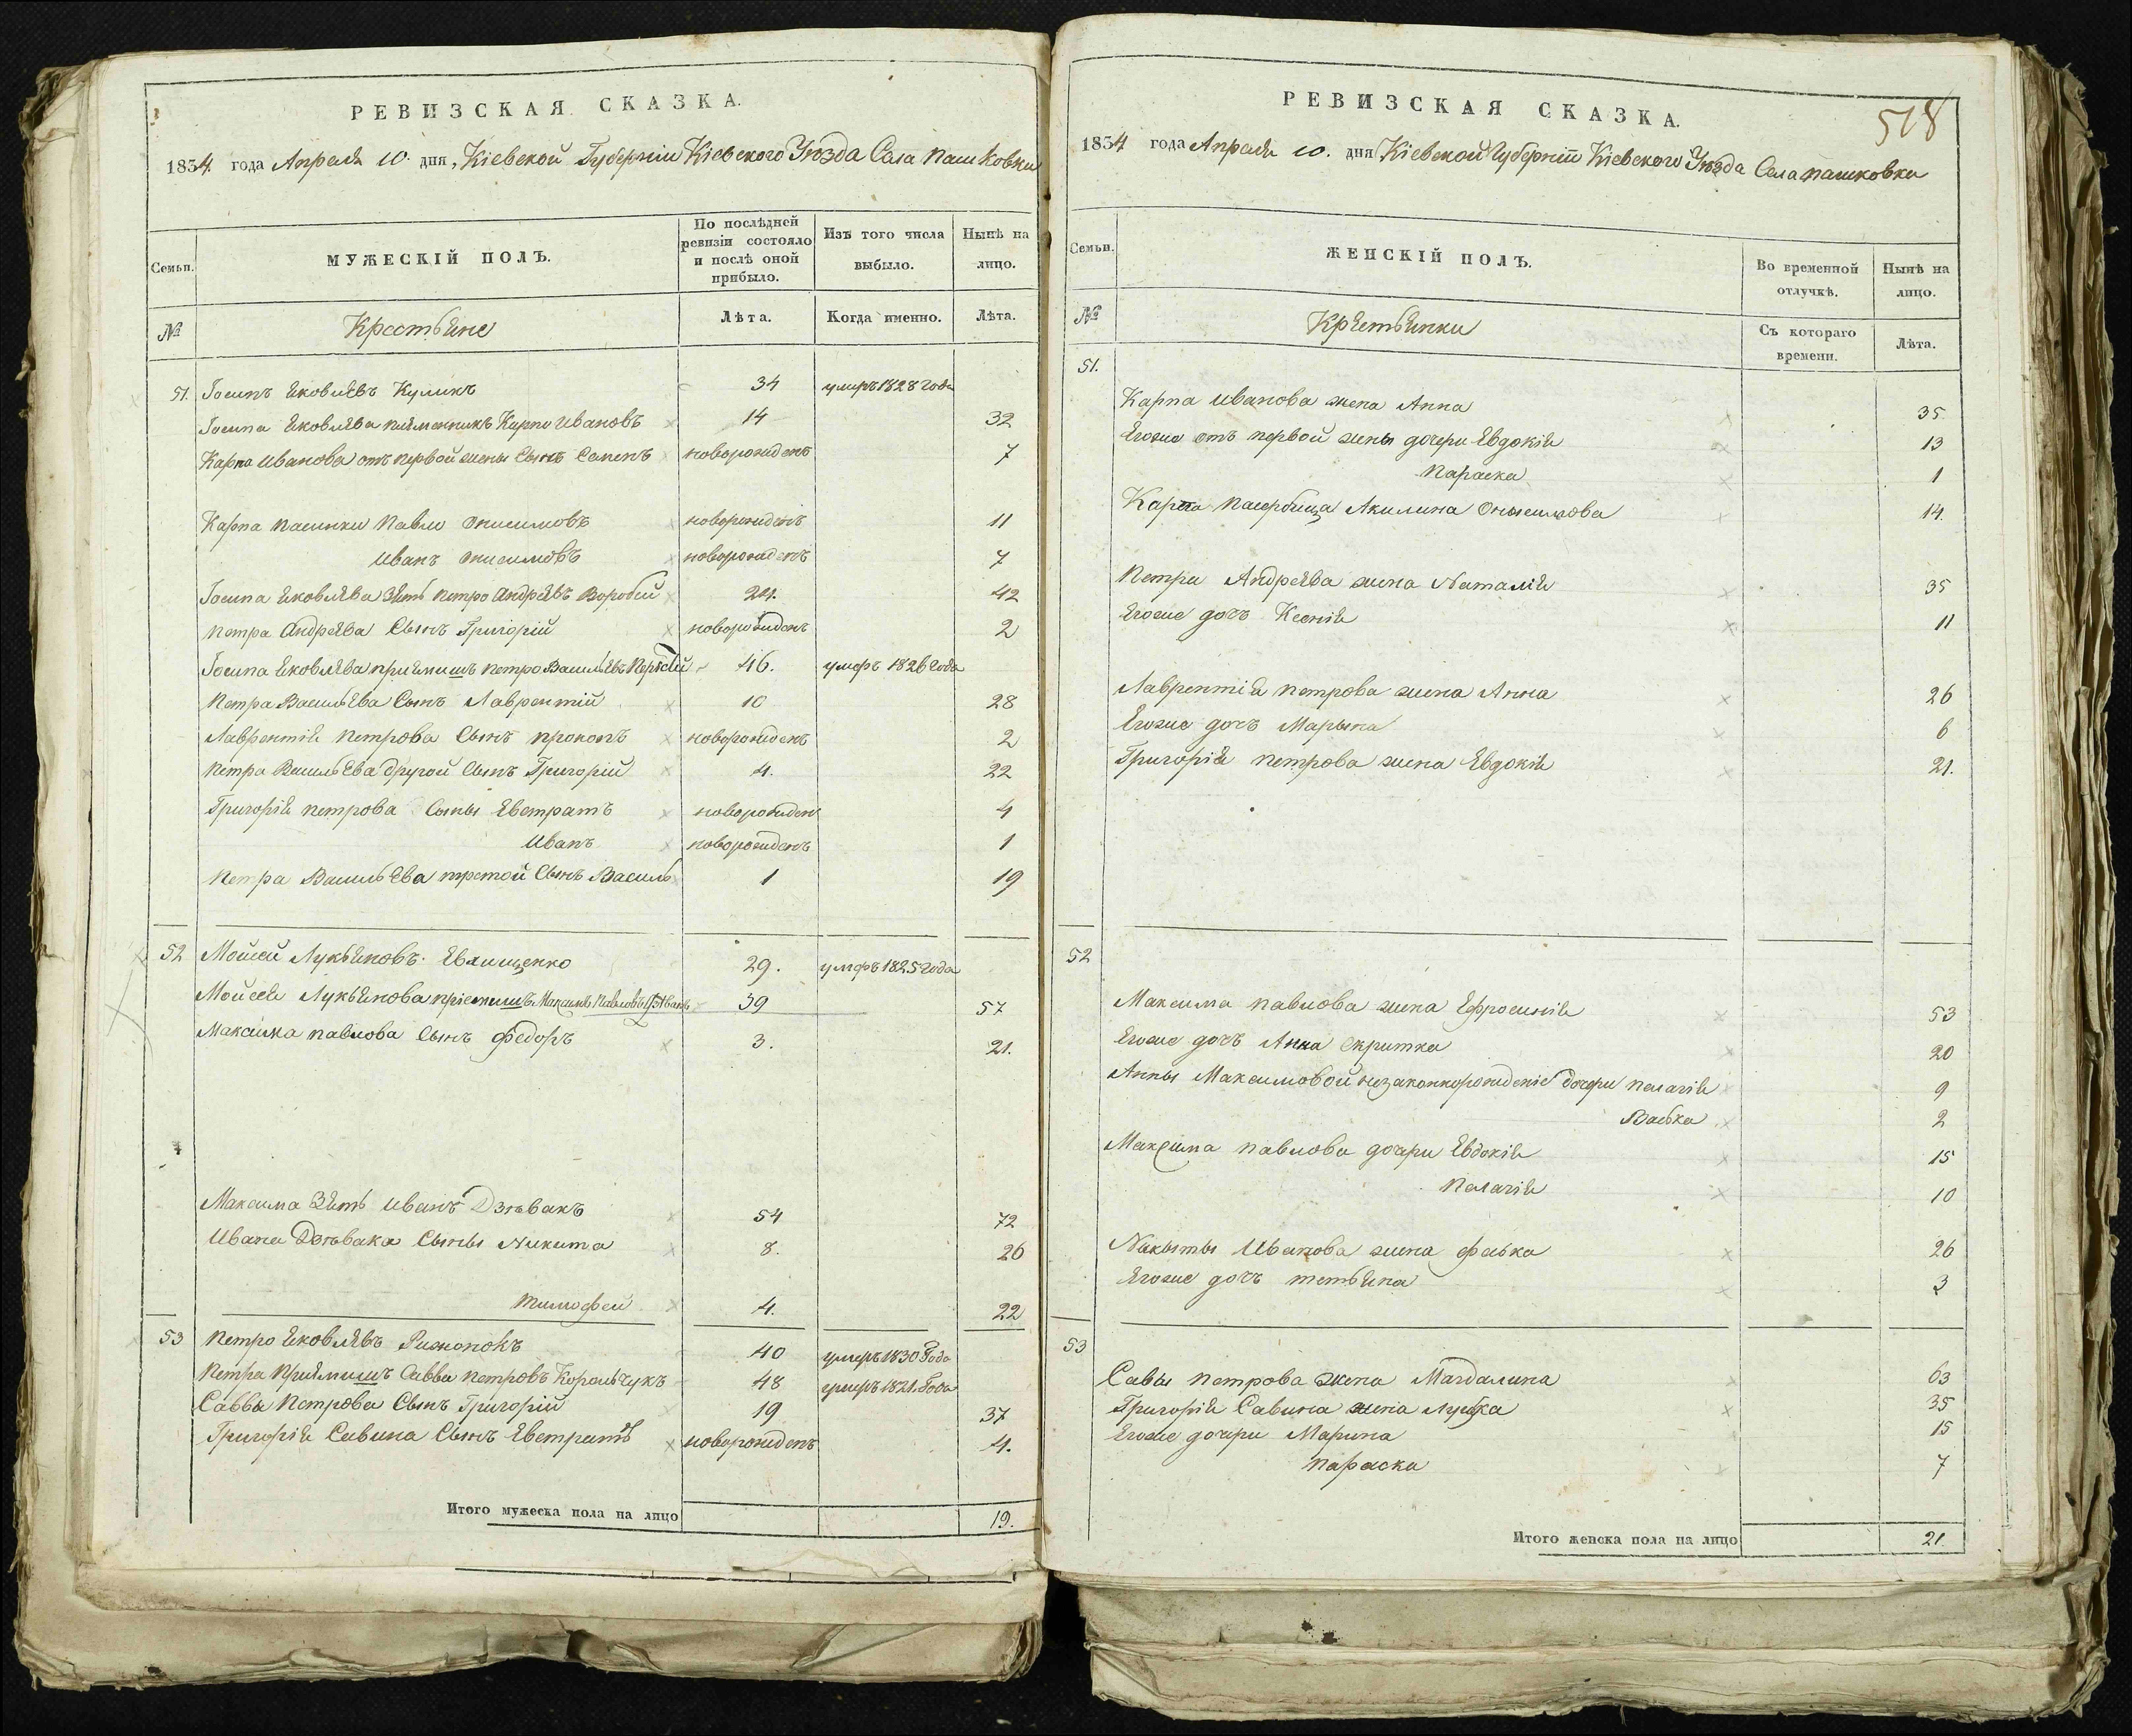 РЕВИЗСКАЯ СКАЗКА.
1834. года Апреля 10. дня, Кіевской Губерніи Кіевского Уѣзда Села Пашковки
Семьи. МУЖЕСКІЙ ПОЛЪ. По послѣдней ревизіи состояло и послѣ оной прибыло. Изъ того числа выбыло. Нынѣ на лицо.
№ Крестьяне Лѣта. Когда именно. Лѣта.
51. Іосипъ Яковлевъ Куликъ 34 умеръ 1828 года
Іосипа Яковлева племенникъ Карпо Ивановъ 14 32
Карпа Иванова отъ первой жены Сынъ Семенъ новорожденъ 7
Карпа пасинки Павло Онисимовъ новорожденъ 11
Иванъ Онисимовъ новорожденъ 7
Іосипа Яковлева Зять Петро Андреевъ Воробей 24. 42
Петра Андреева Сынъ Григорій новорожденъ 2
Іосипа Яковлева пріемишъ Петро Васильевъ 46. умеръ 1826 года
Петра Васильева Сынъ Лаврентій 10 28
Лаврентія Петрова Сынъ Прокопъ новорожденъ 2
Петра Васильева другой Сынъ Григорій 4. 22
Григорія Петрова Сыны Евстратъ новорожденъ 4
Иванъ новорожденъ 1
Петра Васильева третой Сынъ Василь 1 19
52 Мойсей Лукьяновъ 29. умеръ 1825 года
Мойсея Лукьянова пріемишъ Максимъ Павловъ 39 57
Максима Павлова Сынъ Федоръ 3. 21.
Максима Зять Иванъ Дзѣвакъ 54 72
Ивана Дзѣвака Сыны Никита 8. 26
Тимофей 4. 22
53 Петро Яковлевъ Рижонокъ 40 умеръ 1830 Года
Петра пріемишъ Савва Петровъ Корольчукъ 48 умеръ 1821. Года
Саввы Петрова Сынъ Григорій 19 37
Григорія Савина Сынъ Евстратъ новорожденъ 4.
Итого мужеска пола на лицо 19.
518
РЕВИЗСКАЯ СКАЗКА.
1834 года Апреля 10. дня Кіевской Губерніи Кіевского Уѣзда Села Пашковки
Семьи. ЖЕНСКІЙ ПОЛЪ. Во временной отлучкѣ. Нынѣ на лицо.
№ Крестьянки Съ котораго времени. Лѣта.
51.
Карпа Иванова жена Анна 35
Егоже отъ первой жены дочери Евдокія 13
Параска 1
Карпа пасербица Акилина Онисимова 14.
Петра Андреева жена Наталія 35
Егоже дочъ Ксенія 11
Лаврентія Петрова жена Анна 26
Егоже дочъ Марына 6
Григорія Петрова жена Евдокія 21.
52
Максима Павлова жена Ефросинія 53
Егоже дочъ Анна 20
Анны Максимовой незаконорожденіе дочери Пелагія 9
Васька 2
Максима Павлова дочери Евдокія 15
Пелагія 10
Никиты Иванова жена Феська 26
Егоже дочъ Тетьяна 3
53
Савы Петрова жена Магдалина 63
Григорія Савина жена 35
Егоже дочери Марина 15
Параска 7
Итого женска пола на лицо 21.